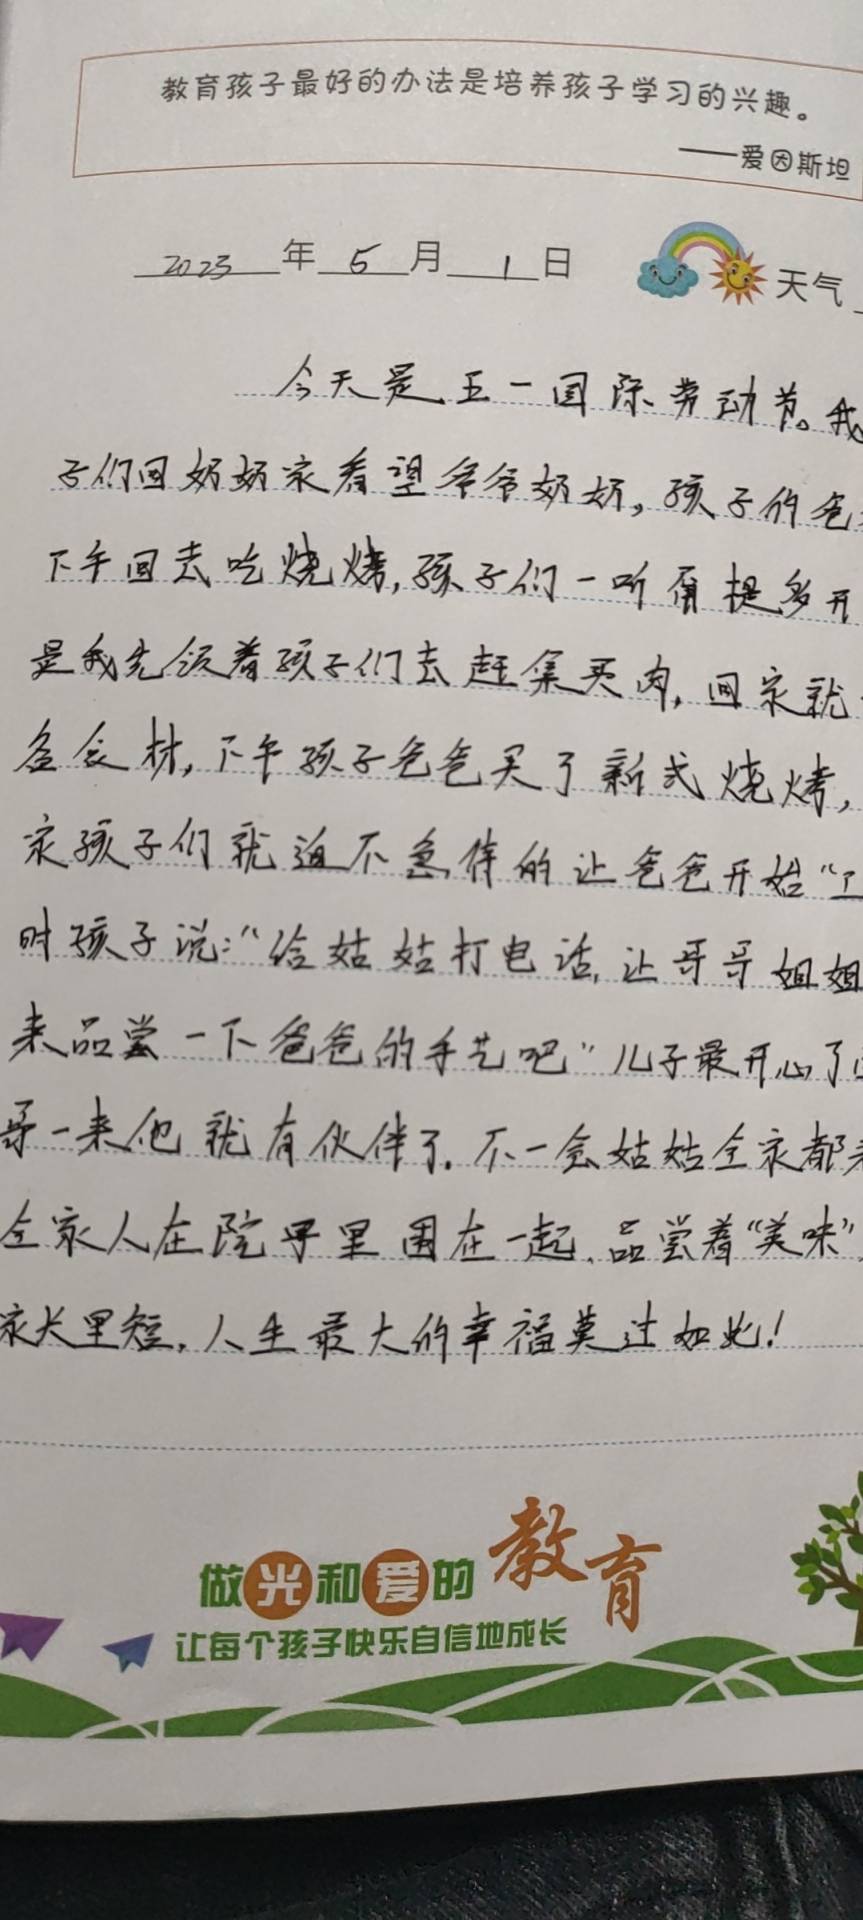 教育孩子最好的办法是培养孩子学习的兴趣。
——爱因斯坦
2023年5月1日 天气
今天是五一国际劳动节。我
子们回奶奶家看望爷爷奶奶，孩子的爸
下午回去吃烧烤，孩子们一听甭提多开
是我先领着孩子们去赶集买肉，回家就
备食材，下午孩子爸爸买了新式烧烤，
家孩子们就迫不急待的让爸爸开始“
时孩子说：“给姑姑打电话，让哥哥姐姐
来品尝一下爸爸的手艺吧”儿子最开心了
哥一来他就有伙伴了。不一会姑姑全家都来
全家人在院子里围在一起，品尝着“美味”
家长里短，人生最大的幸福莫过如此！
做光和爱的教育
让每个孩子快乐自信地成长